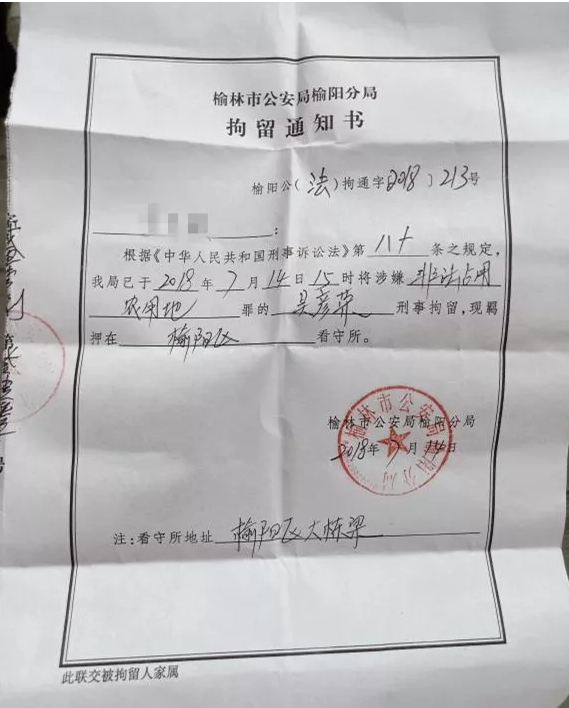 榆林市公安局榆阳分局
拘留通知书
榆阳公(法)拘通字〔2018〕213号
:
根据《中华人民共和国刑事诉讼法》第八十条之规定，
我局已于2018年7月14日15时将涉嫌非法占用
农用地罪的吴彦荣刑事拘留，现羁
押在榆阳区看守所。
榆林市公安局榆阳分局
2018年7月14日
注：看守所地址榆阳区大桥梁
此联交被拘留人家属